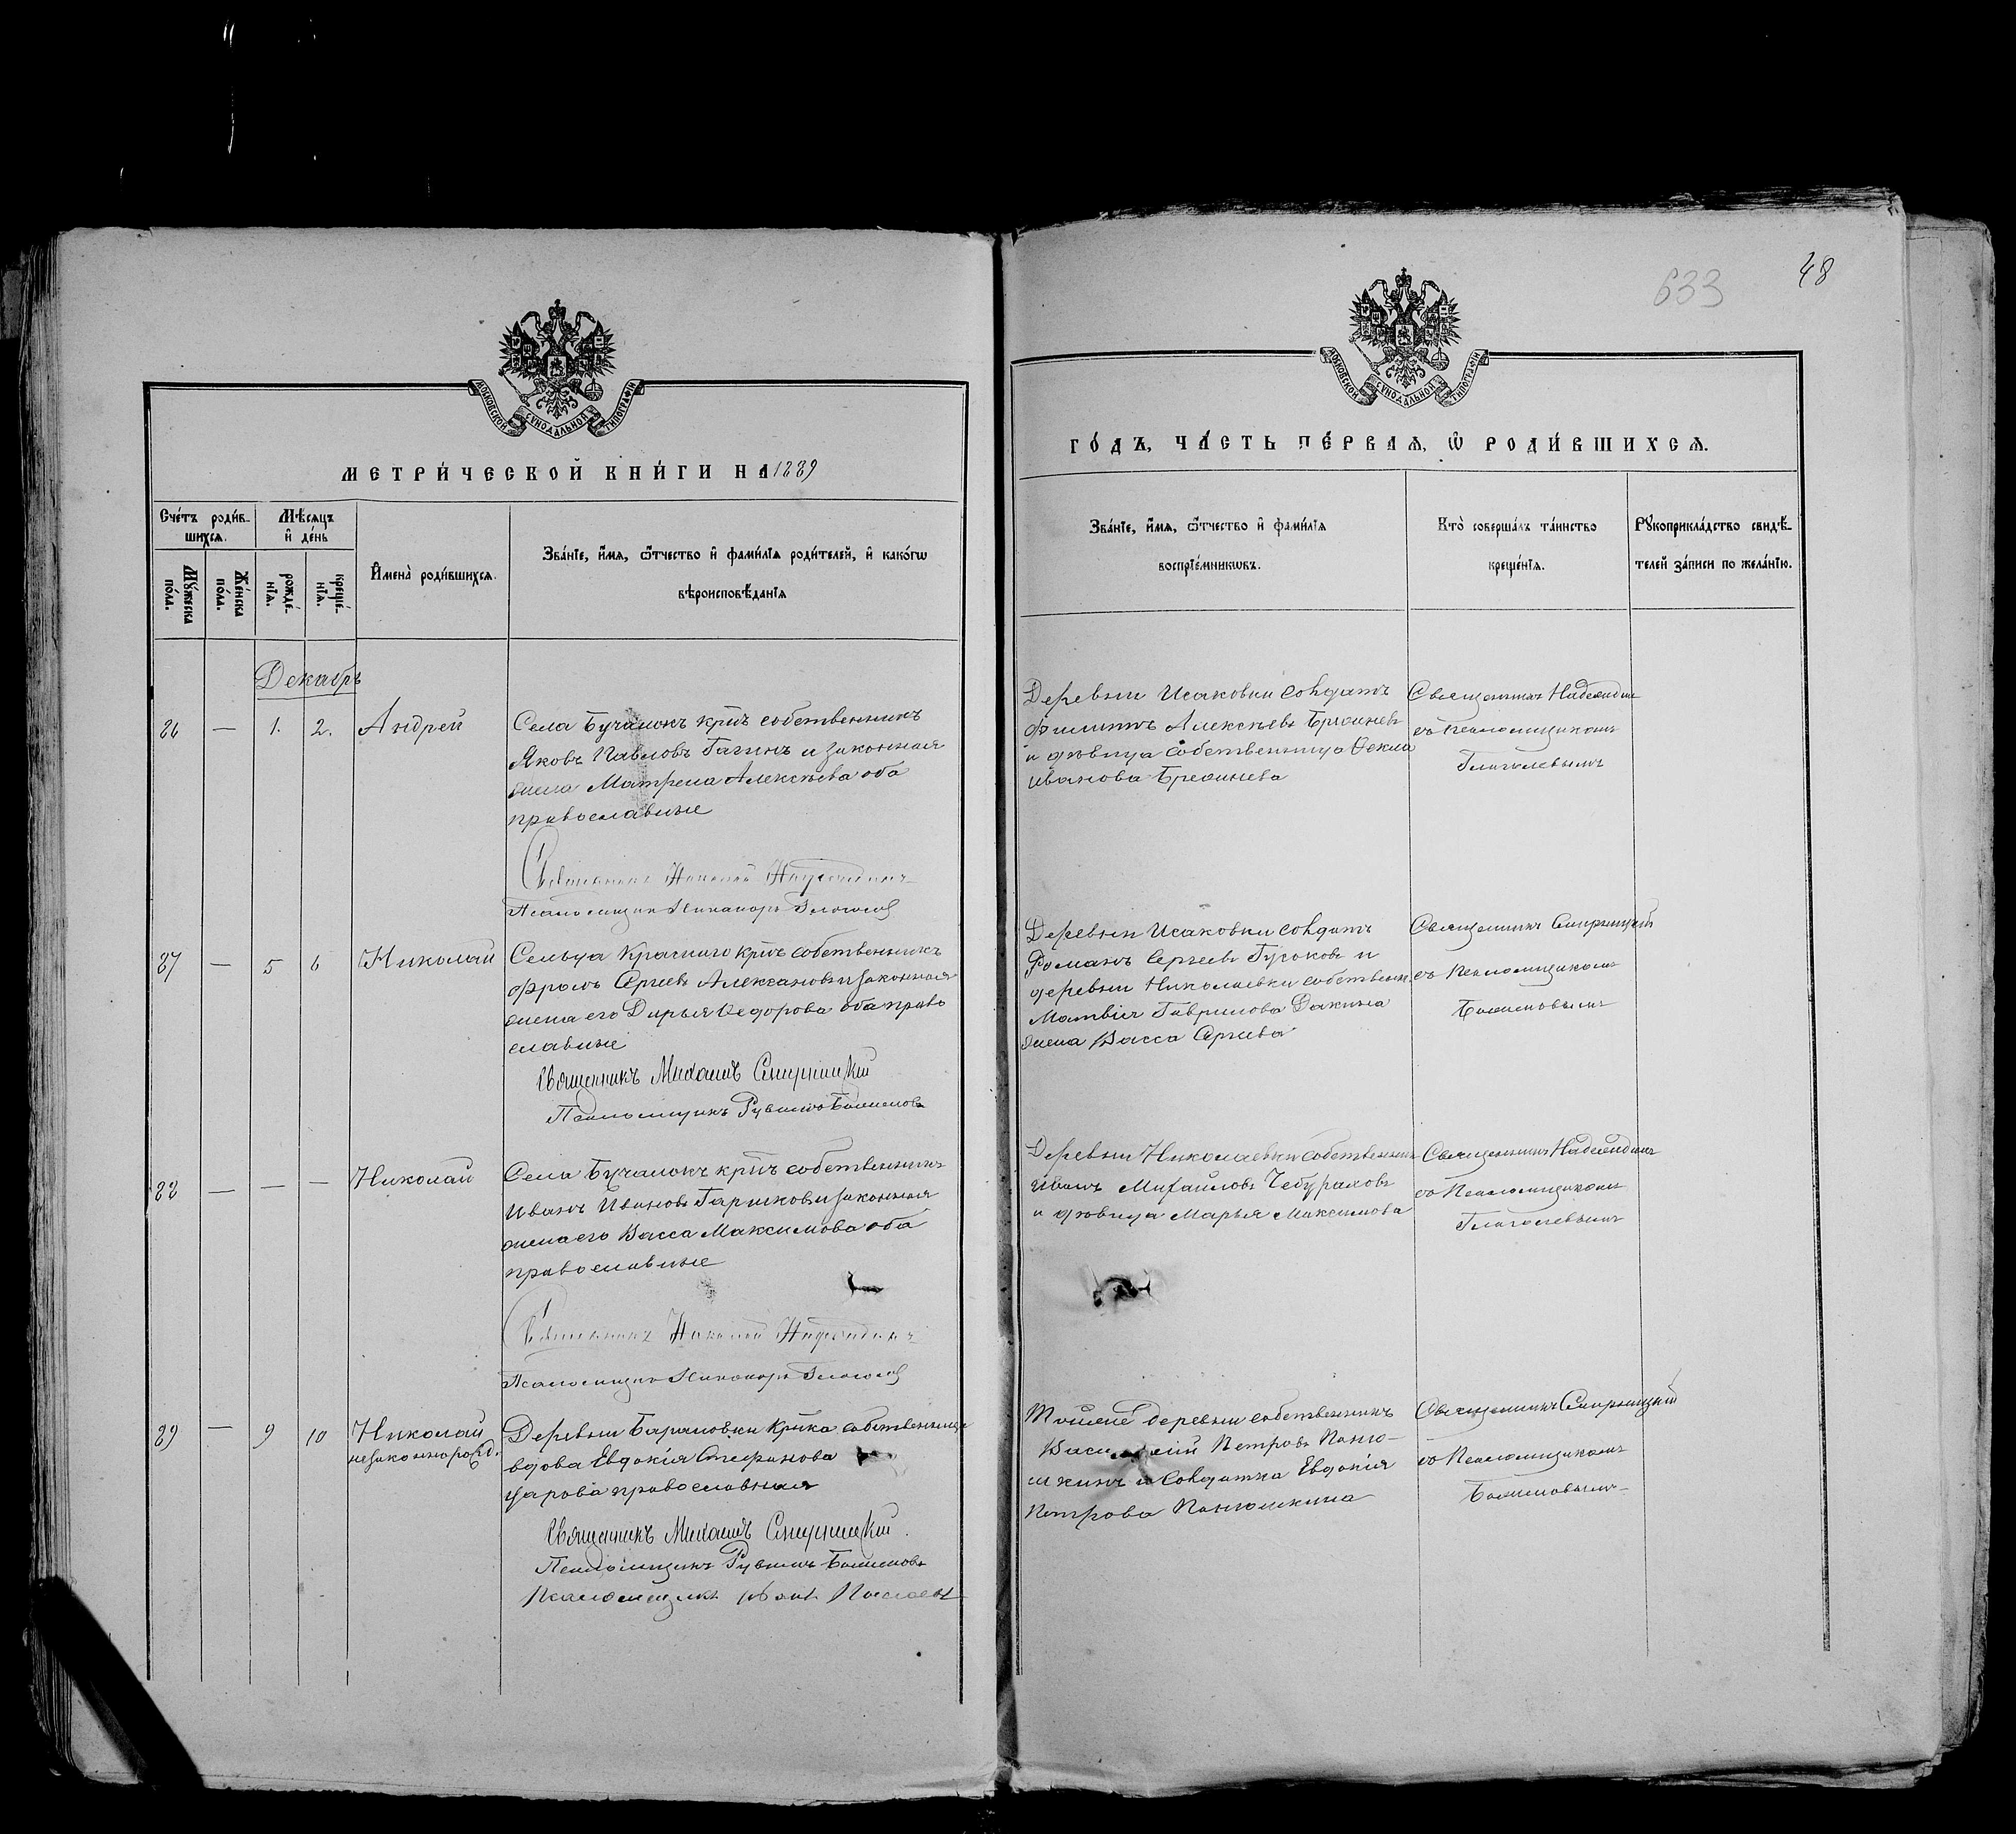 633
48
МОСКОВСКОЙ СУНОДАЛЬНОЙ ТИПОГРАФІИ
МЕТРИ́ЧЕСКОЙ КНИ́ГИ НА 1889
Сче́тъ роди́в-
шихсѧ.
Мѣсѧцъ
и҆ де́нь
Мꙋ́жеска
по́ла.
Же́нска
по́ла.
рожде́-
нїѧ.
креще́-
нїѧ.
И҆мена̀ роди́вшихсѧ.
Зва́нїе, и҆́мѧ, ѻ҆́тчество и҆ фами́лїѧ роди́телей, и҆ како́гѡ
вѣроисповѣ́данїѧ
Декабрь
86 — 1. 2. Андрей
Села Бучалокъ крнъ собственникъ
Яковъ Павловъ Гагинъ и законная
жена Матрена Алексѣева оба
православные
Священникъ Николай Надеждинъ
Псаломщикъ Никаноръ Глаголевъ
87 — 5 6 Николай
Сельца Краснаго крнъ собственникъ
Фролъ Сергѣевъ Алексановъ и законная
жена его Дарья Ѳедорова оба право
славные
Священникъ Михаилъ Смирницкій
Псаломщикъ
88 — — — Николай
Села Бучалокъ крнъ собственникъ
Иванъ Ивановъ Гаришковъ и законная
жена его Васса Максимова оба
православные
Священникъ Николай Надеждинъ
Псаломщикъ Никаноръ Глаголевъ
89 — 9 10 Николай
незаконнорожд.
Деревни Барановки крнка собственница
вдова Евдокія Стефанова
православная
Священникъ Михаилъ Смирницкій.
Псаломщикъ
Псаломщикъ
МОСКОВСКОЙ СУНОДАЛЬНОЙ ТИПОГРАФІИ
ГО́ДЪ, ЧА́СТЬ ПЕ́РВАѦ, Ѡ҆ РОДИ́ВШИХСѦ.
Зва́нїе, и҆́мѧ, ѻ҆́тчество и҆ фами́лїѧ
воспрїе́мникѡвъ.
Кто̀ соверша́лъ та́инство
креще́нїѧ.
Рꙋкоприкла́дство свидѣ́-
телей за́писи по жела́нїю.
Деревни Исаковки солдатъ
Филиппъ Алексѣевъ
и дѣвица собственница Ѳекла
Иванова
Священникъ Надеждинъ
съ Псаломщикомъ
Глаголевымъ
Деревни Исаковки солдатъ
Романъ Сергѣевъ Гусоковъ и
деревни Николаевки собственн.
Матвія Гаврилова Дакина
жена Васса Сергѣева
Священникъ Смирницкій
съ Псаломщикомъ
Деревни Николаевки собственникъ
Иванъ Михайловъ Чебураховъ
и дѣвица Марья Максимова
Священникъ Надеждинъ
съ Псаломщикомъ
Глаголевымъ
Тойже деревни собственникъ
Петровъ Паню-
шкинъ и солдатка Евдокія
Петрова Панюшкина
Священникъ Смирницкій
съ Псаломщикомъ